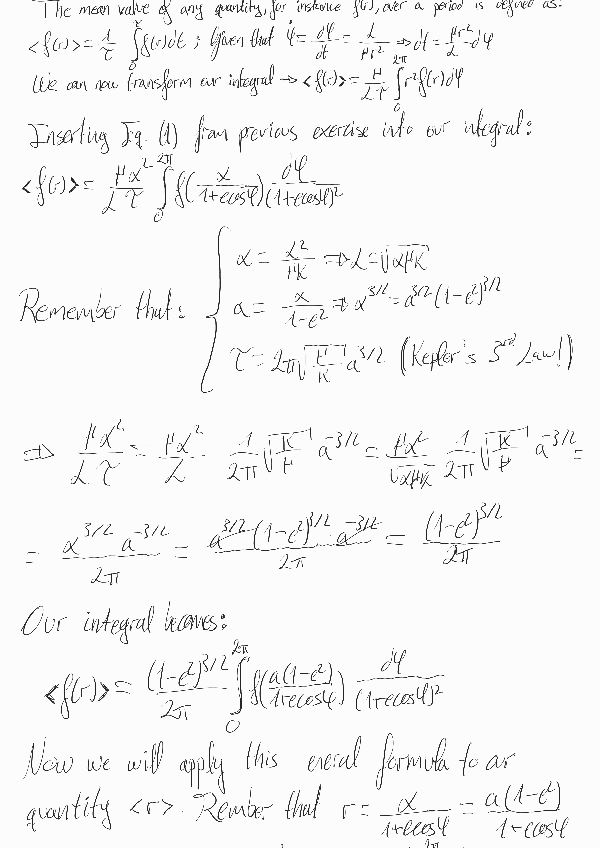 The mean value of any quantity, for instance f(r), over a period is defined as:
<f(r)> = 1/τ ∫₀^τ f(r)dt ; Given that φ̇ = dφ/dt = L/μr² ⇒ dt = μr²/L dφ
We can now transform our integral → <f(r)> = μ/(Lτ) ∫₀^2π r² f(r)dφ
Inserting Eq. (1) from previous exercise into our integral:
<f(r)> = μα²/(Lτ) ∫₀^2π f(α/(1+ecosφ)) dφ/(1+ecosφ)²
α = L²/μK ⇒ L = √(αμK)
Remember that: a = α/(1-e²) ⇒ α^3/2 = a^3/2 (1-e²)^3/2
τ = 2π√(μ/K) a^3/2 (Kepler's 3rd Law!)
⇒ μα²/(Lτ) = μα²/L 1/2π √(K/μ) a^-3/2 = μα²/√(αμK) 1/2π √(K/μ) a^-3/2 =
= α^3/2 a^-3/2 / 2π = a^3/2 (1-e²)^3/2 a^-3/2 / 2π = (1-e²)^3/2 / 2π
Our integral becomes:
<f(r)> = (1-e²)^3/2 / 2π ∫₀^2π f(a(1-e²)/(1+ecosφ)) dφ/(1+ecosφ)²
Now we will apply this eneral formula to ar
quantity <r>. Rember that r = α/(1+ecosφ) = a(1-e²)/(1+ecosφ)